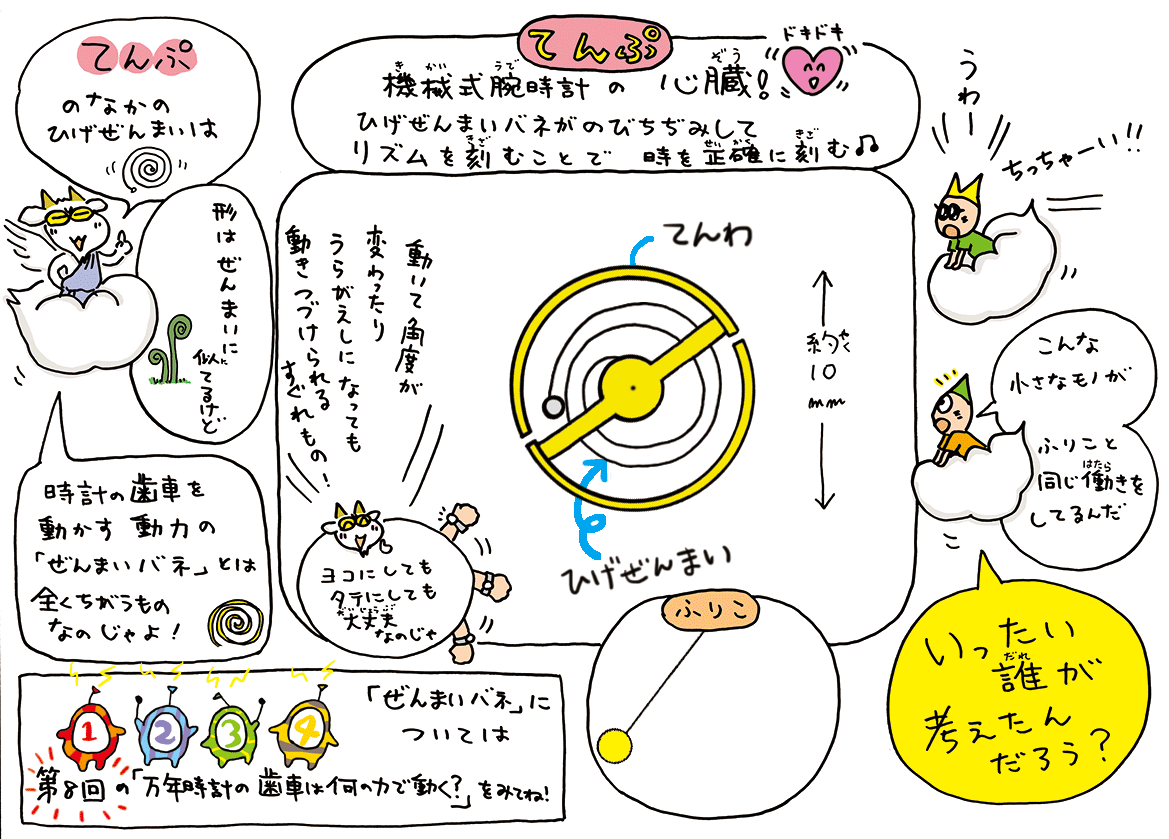 てんぷ
機械式腕時計の心臓!
きかい
うで
ぞう
ドキドキ
ひげぜんまいバネがのびちぢみして
リズムを刻むことで 時を正確に刻む♫
きざ
せいかく
きざ
てんぷ
のなかの
ひげぜんまいは
形はぜんまいに
似てるけど
に
時計の歯車を
動かす動力の
「ぜんまいバネ」とは
全くちがうもの
なのじゃよ!
動いて角度が
変わったり
うらがえしになっても
動きつづけられる
すぐれもの!
ヨコにしても
タテにしても
大丈夫
だいじょうぶ
なのじゃ
てんわ
ひげぜんまい
約
やく
10
mm
ふりこ
うわー
ちっちゃーい!!
こんな
小さなモノが
ふりこと
同じ働きを
はたら
してるんだ
いったい
誰が
だれ
考えたん
だろう?
1
2
3
4
「ぜんまいバネ」に
ついては
第8回の「万年時計の歯車は何の力で動く?」をみてね!